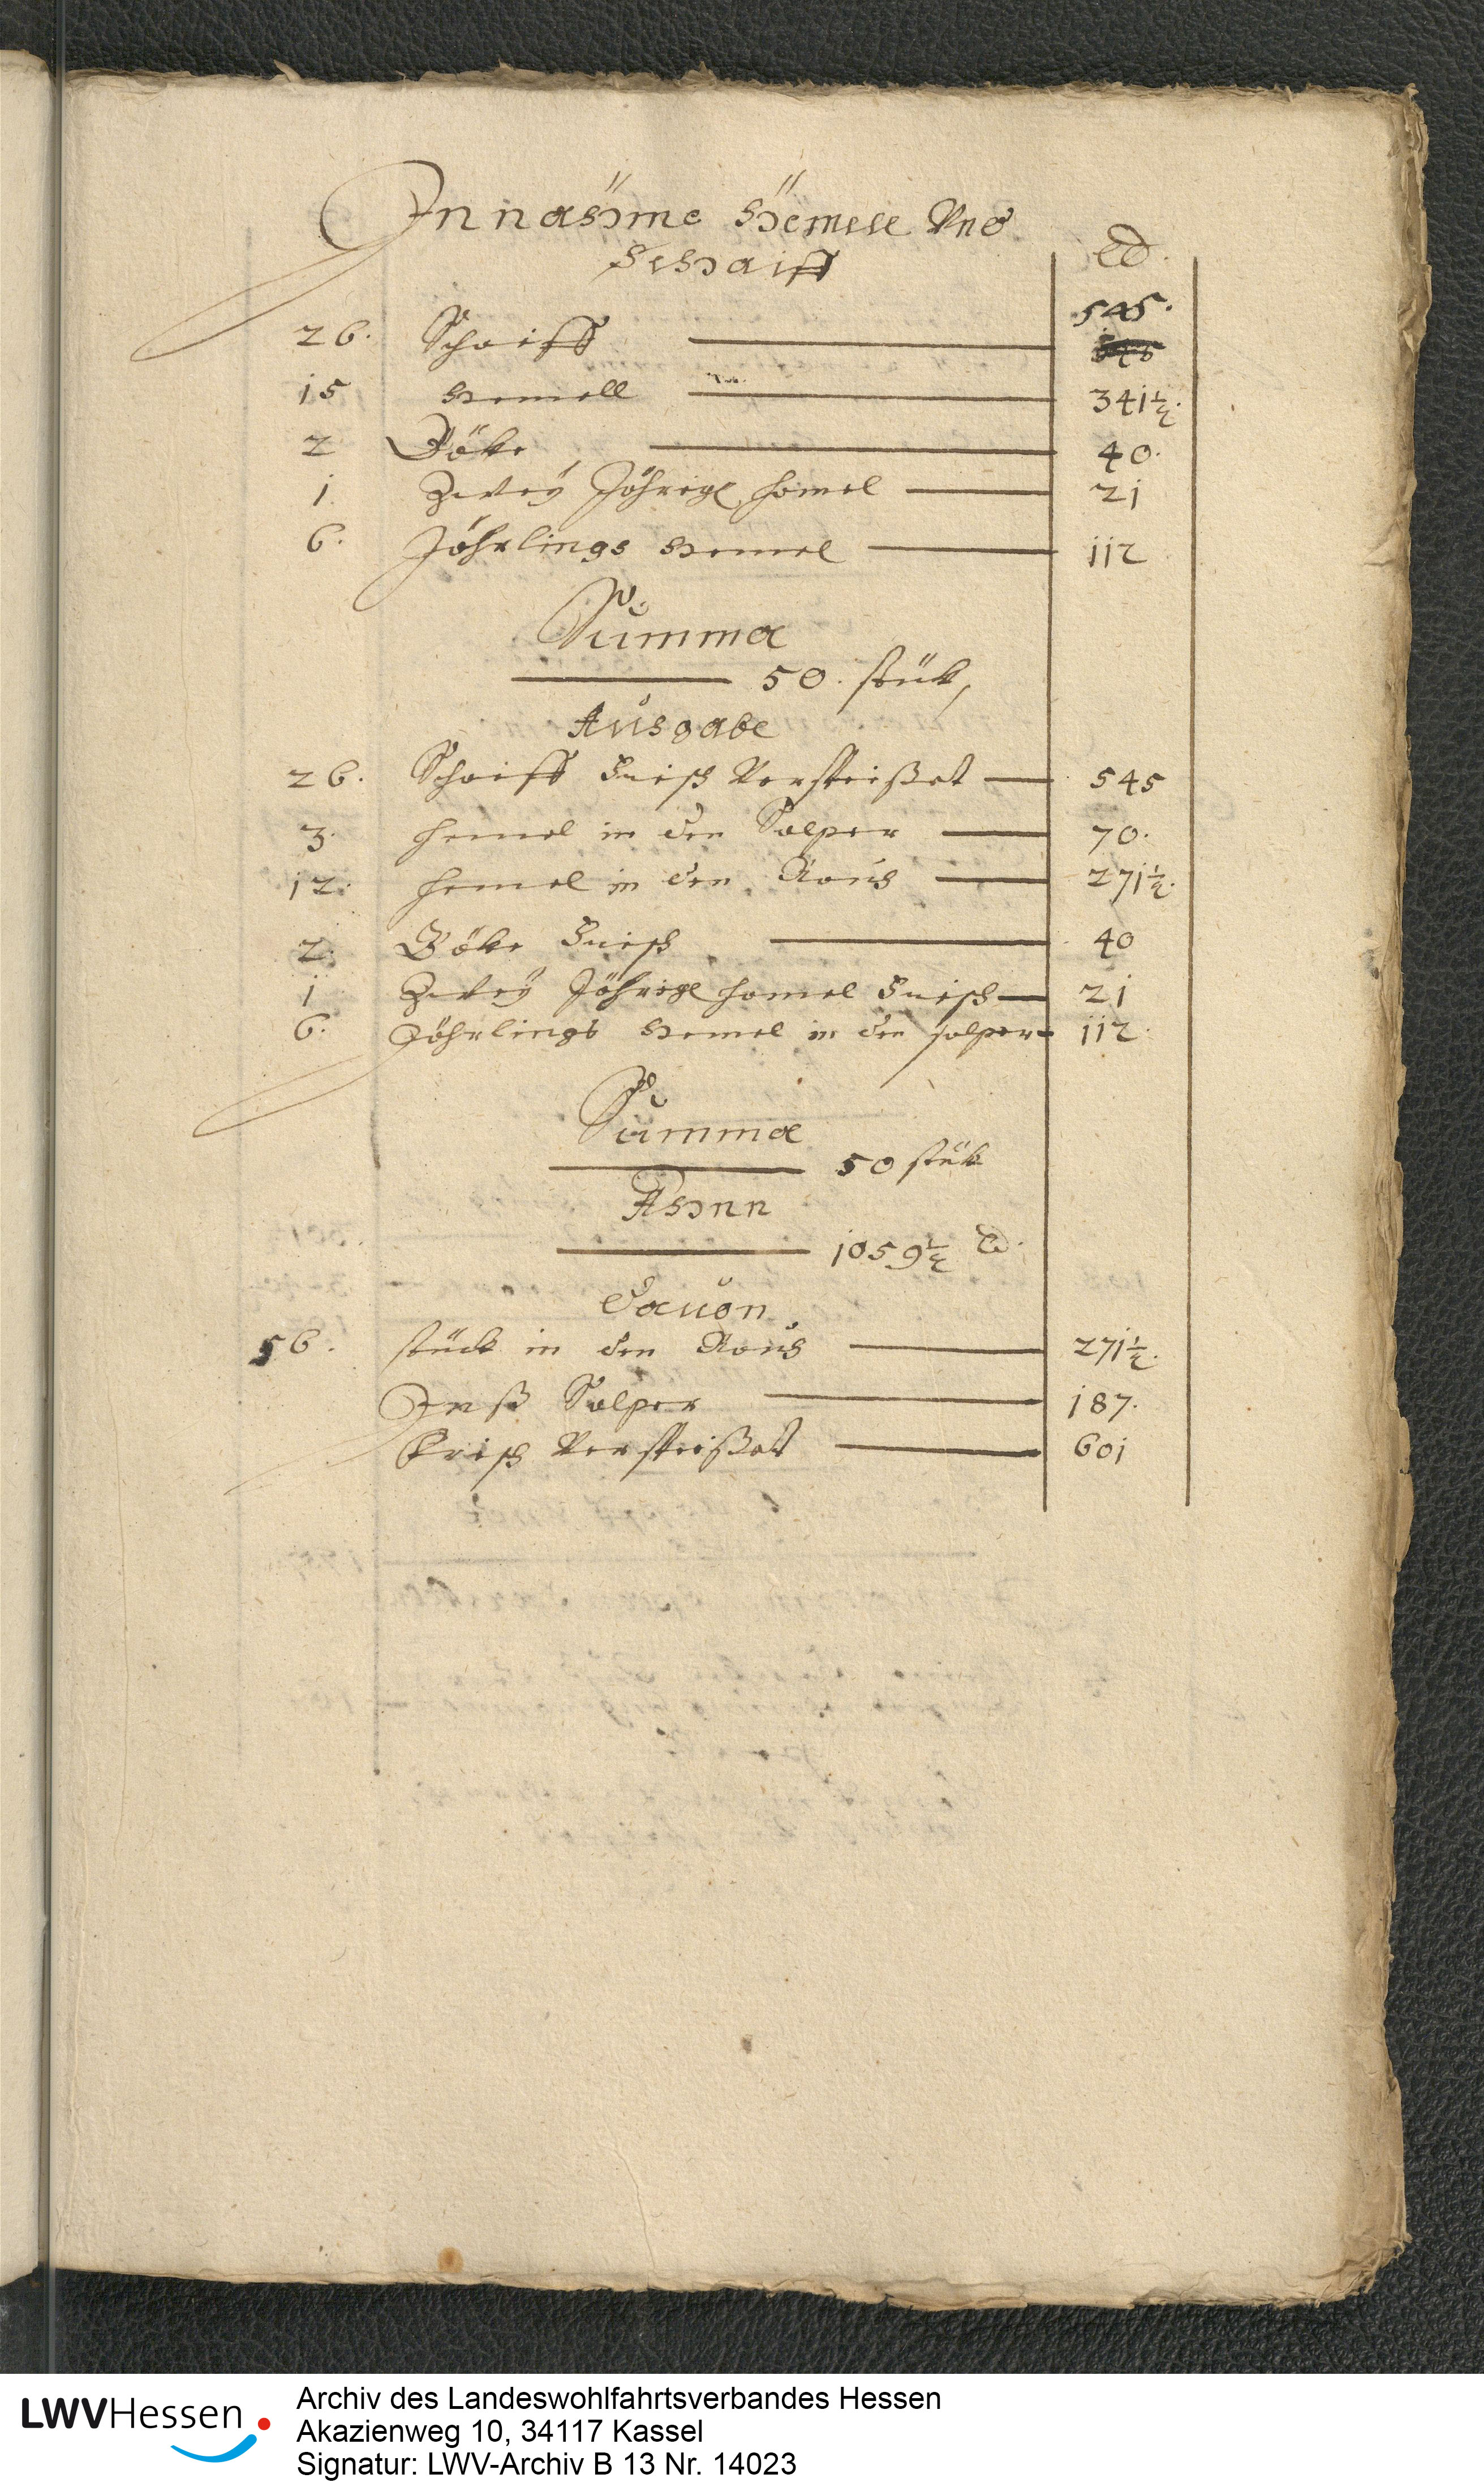 Innahme Hemell Vnd
Schaiff
℔.
545.
26. Schaiff
15 Hemell 341½.
2 Böke 40.
1 Zweÿ Jöhrige hemel 21
6. Jöhrlings Hemel 112
Summa
50. stük,
Ausgabe
26. Schaiff Frisch Verspeißet 545
3. hemel in den Salper 70.
12. hemel in den Rauch 271½.
2. Böke Frisch 40
1 Zweÿ Jöhrige hemel Frisch 21
6. Jöhrlings Hemel in den salper 112.
Summa
50 stük
Ahnn
1059½ ℔.
Dauon
56. stück in den Rauch 271½.
Inß Salper 187.
Frisch Verspeißet 601
LWVHessen
Archiv des Landeswohlfahrtsverbandes Hessen
Akazienweg 10, 34117 Kassel
Signatur: LWV-Archiv B 13 Nr. 14023